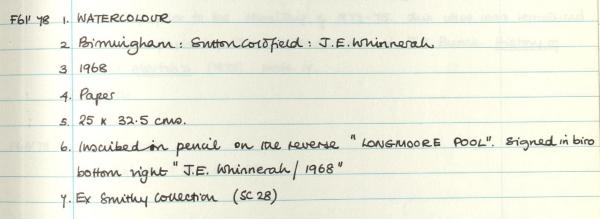 F61' 78 1. WATERCOLOUR
2 Birmingham: Sutton Coldfield: J.E. Whinnerah
3 1968
4. Paper
5. 25 x 32.5 cms.
6. Inscribed in pencil on the reverse "LONGMOORE POOL". Signed in biro
bottom right "J.E. Whinnerah / 1968"
7. Ex Smithy Collection (SC 28)